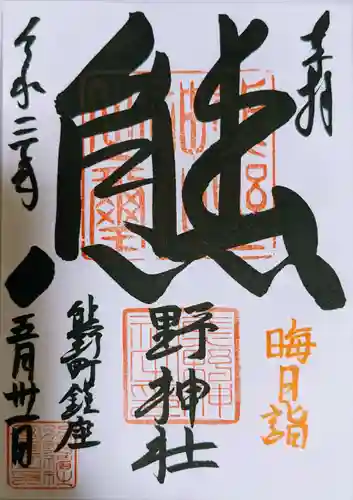 奉拝
晦日詣
熊
野神社
熊野町鎮座
令和二年
五月卅一日